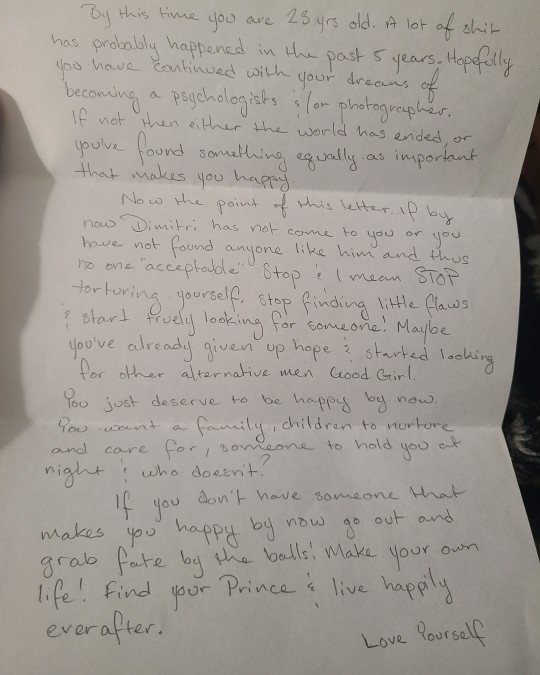 By this time you are 23 yrs old. A lot of shit
has probably happened in the past 5 years. Hopefully
you have continued with your dreams of
becoming a psychologists &/or photographer.
If not then either the world has ended, or
you've found something equally as important
that makes you happy.
Now the point of this letter. If by
now Dimitri has not come to you or you
have not found anyone like him and thus
no one "acceptable" Stop & I mean STOP
torturing yourself. Stop finding little flaws
& start truely looking for someone! Maybe
you've already given up hope & started looking
for other alternative men Good Girl.
You just deserve to be happy by now.
You want a family, children to nurture
and care for, someone to hold you at
night & who doesn't?
If you don't have someone that
makes you happy by now go out and
grab fate by the balls! Make your own
life! Find your Prince & live happily
everafter.
Love Yourself